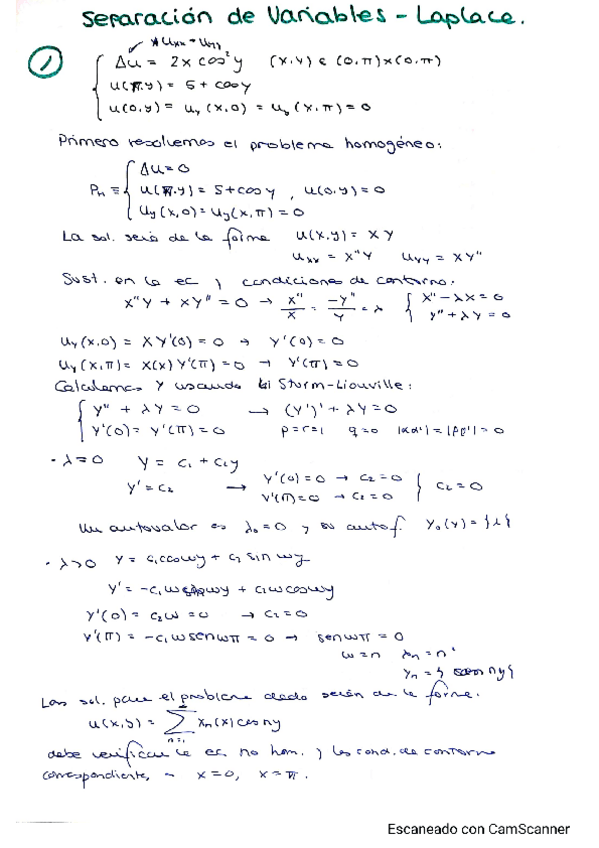 Separación de Variables - Laplace.
* Uxx + Uyy
① { Δu = 2x cos²y (x,y) ∈ (0,π)×(0,π)
u(π,y) = 5 + cosy
u(0,y) = uy(x,0) = uy(x,π) = 0
Primero resolvemos el problema homogéneo:
{ Δu = 0
Pn ≡ { u(π,y) = 5+cosy , u(0,y) = 0
Uy(x,0) = Uy(x,π) = 0
La sol. será de la forma u(x,y) = XY
uxx = X''Y uyy = XY''
Sust. en la ec y condiciones de contorno:
X''Y + XY'' = 0 → X''/X = -Y''/Y = λ { X'' - λX = 0
Y'' + λY = 0
uy(x,0) = XY'(0) = 0 → Y'(0) = 0
uy(x,π) = X(x)Y'(π) = 0 → Y'(π) = 0
Calculamos Y usando Sturm-Liouville:
{ Y'' + λY = 0 → (Y')' + λY = 0
Y'(0) = Y'(π) = 0 p=r=1 q=0 |αα'| = |ββ'| = 0
· λ=0 Y = C₁ + C₂y
Y' = C₂ → Y'(0) = 0 → C₂ = 0
Y'(π) = 0 → C₂ = 0 } C₂ = 0
Un autovalor es λ₀ = 0 y su autof. Y₀(y) = {1}
· λ>0 Y = C₁coswy + C₂ sin wy
Y' = -C₁w wy + C₂wcoswy
Y'(0) = C₂w = 0 → C₂ = 0
Y'(π) = -C₁wsenwπ = 0 → senwπ = 0
w = n λn = n²
Yn = { cos ny}
Las sol. para el problema dado serán de la forma:
u(x,y) = Σ Xn(x)cosny
n=1
debe verificar la ec no hom. y las cond. de contorno
correspondiente, x=0, x=π.
Escaneado con CamScanner